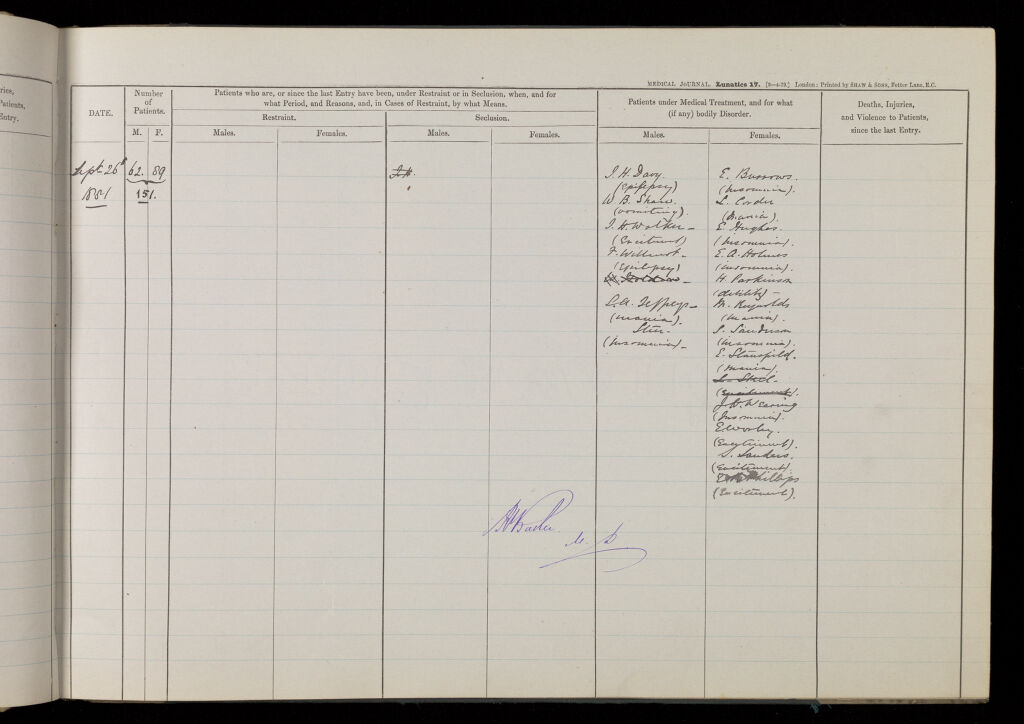 ries,
Patients,
Entry.
MEDICAL JOURNAL. Lunatics 17. [9—4-79.] London: Printed by SHAW & SONS, Fetter Lane, E.C.
DATE.
Number
of
Patients.
M. F.
Patients who are, or since the last Entry have been, under Restraint or in Seclusion, when, and for
what Period, and Reasons, and, in Cases of Restraint, by what Means.
Restraint.
Males. Females.
Seclusion.
Males. Females.
Patients under Medical Treatment, and for what
(if any) bodily Disorder.
Males. Females.
Deaths, Injuries,
and Violence to Patients,
since the last Entry.
Sept 26th 62. 89
1881 151.
J. H. Davy.
(Epilepsy)
W. B. Shaw.
(vomiting).
J. H. Walker -
(Excitement)
F. Willmot -
(Epilepsy)
S. A. Jeffreys -
(mania).
Steer -
(Insomnia) -
E. Burrows.
(Insomnia).
L. Corder
(Mania).
E. Hughes.
(Insomnia).
E. A. Holmes
(Insomnia).
H. Parkinson
(debility) -
M. Reynolds
(Mania).
S. Sanderson
(Insomnia).
E. Stansfield.
(Mania).
(Excitement).
J. H. Wearing
(Insomnia).
E. Worley.
(Excitement).
S. Sanders.
(Excitement).
Phillips
(Excitement).
Baker
M. D